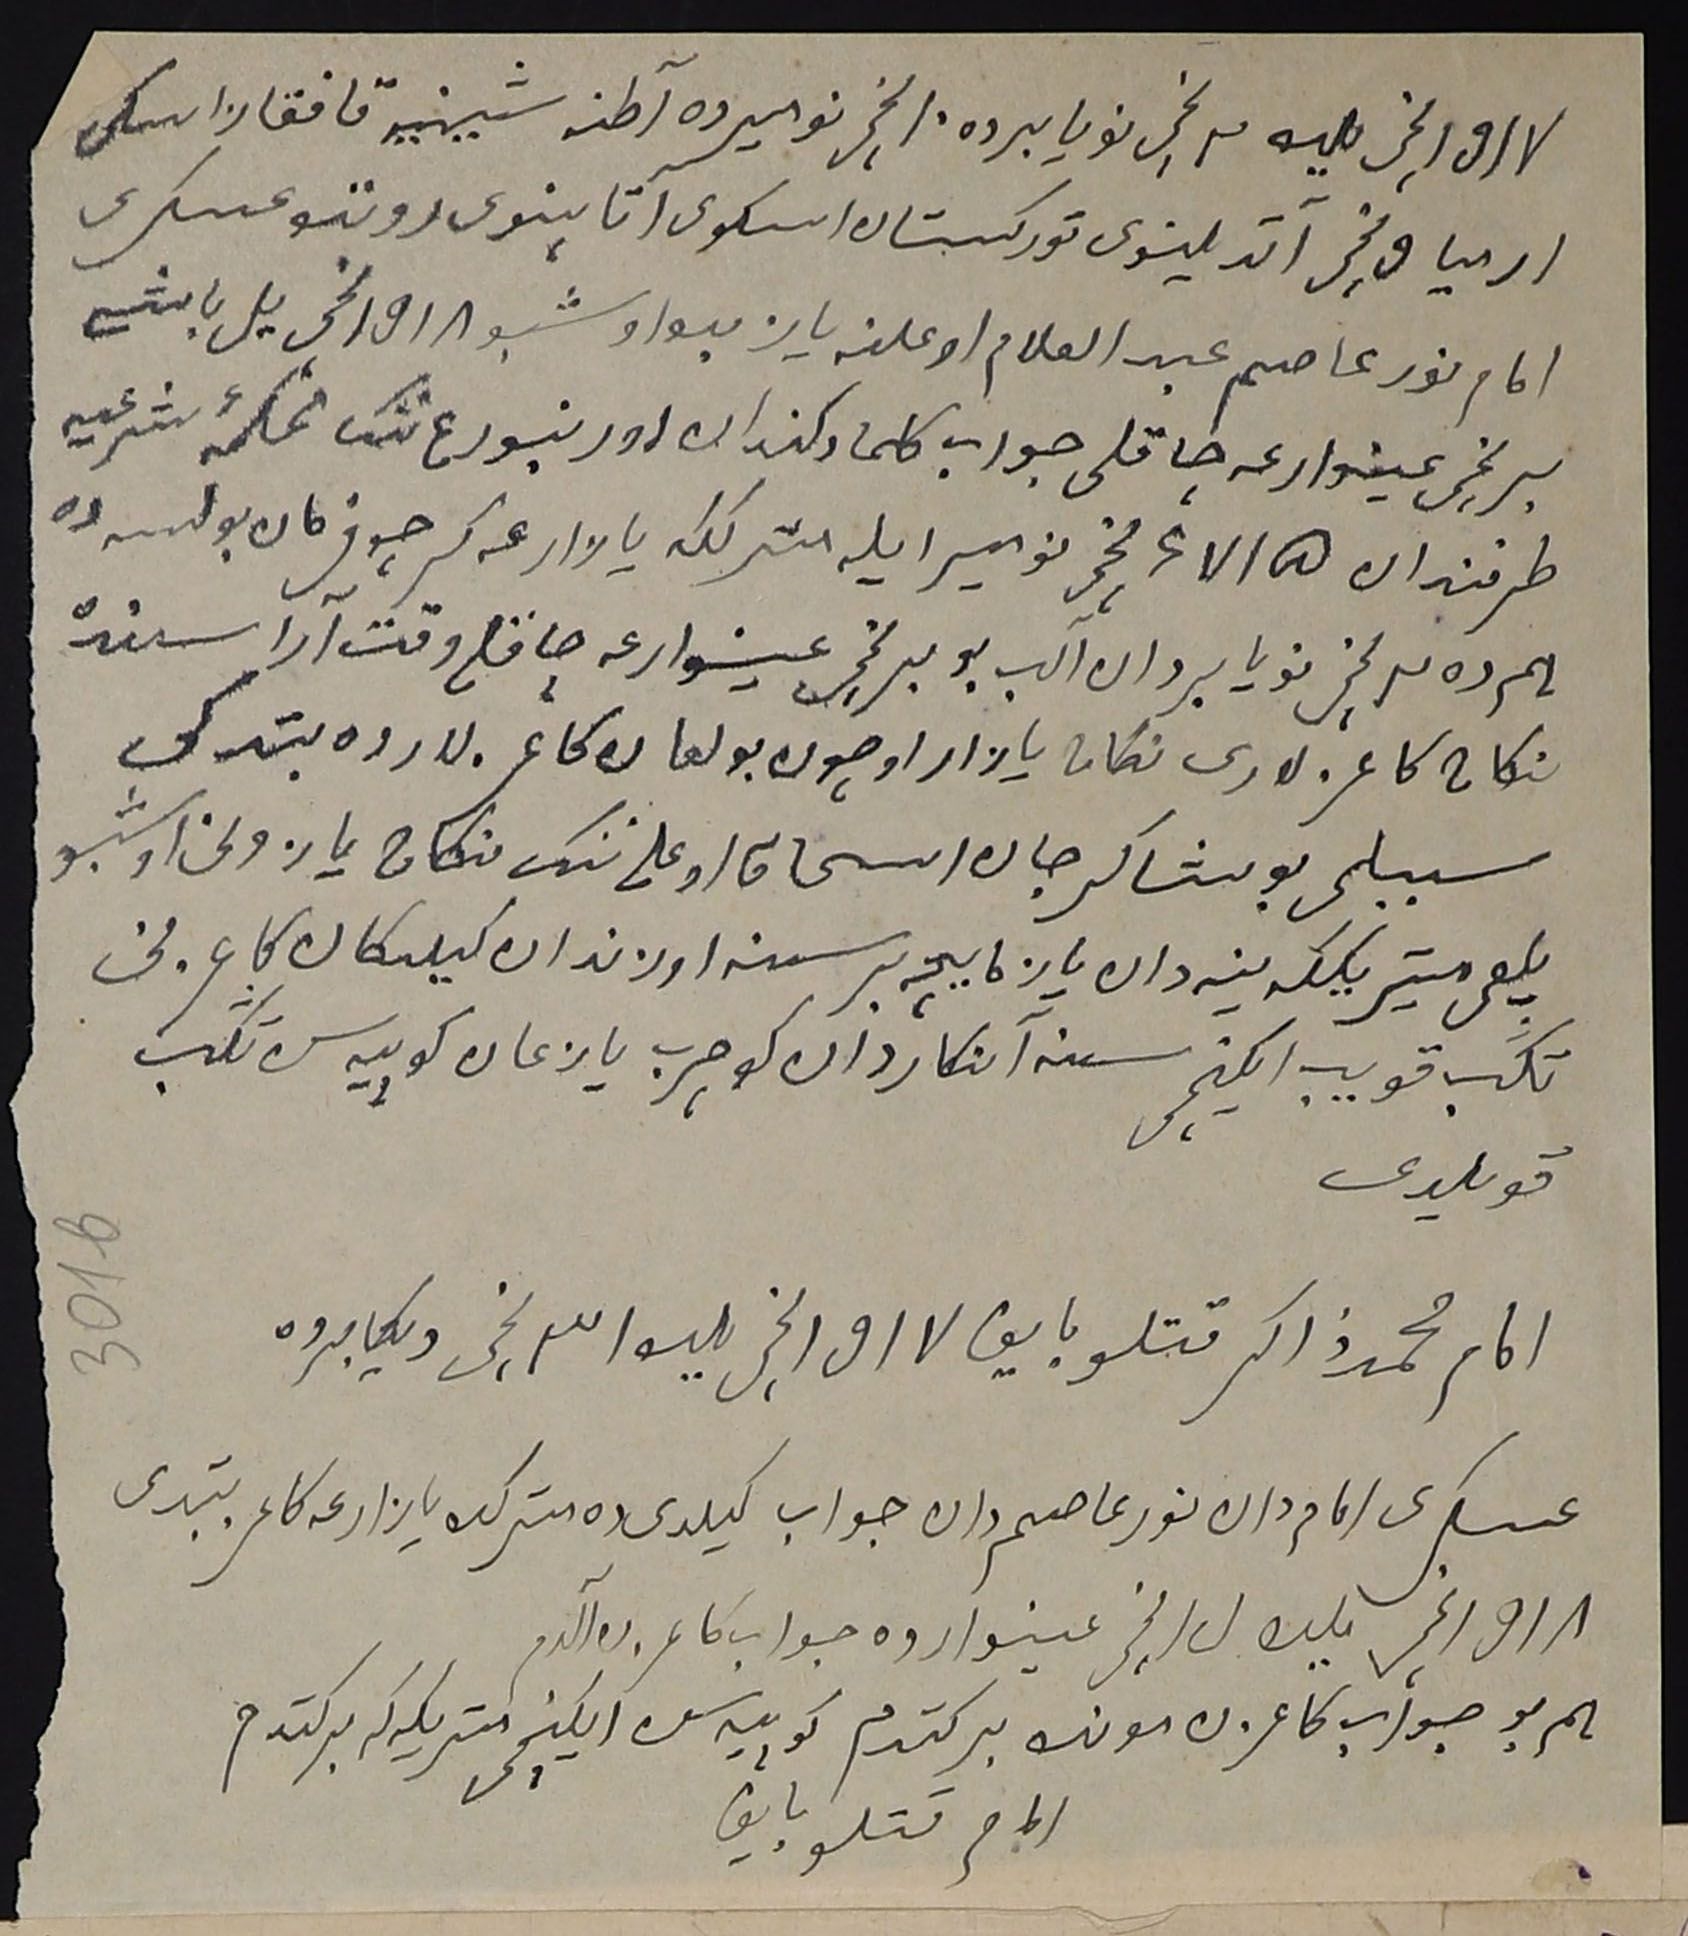 ١٩١٧ نچی یلده ٣ نچی نویابرده ١٠ نچی نومیرده آطنه شینیه قافقازاسکی
ارمیا ٩ نچی آتدیلینوی تورکستان اسکوی آتا پینوی روتنو عسکری
امام نور عاصم عبد العلام اوغلنه یازیبوا اوشبو ١٩١٨ نچی یل باشیه
بر نچی عینوارغه چاقلی جواب کلمادکندان اورنبورغ ننک محکمهٔ شرعیه
طرفندان ٦١٧٥ نچی نومیر ایله متریککه یازارغه کرچوفرمان بولسه ده
هم ده ٣ نچی نویابردان آلب بو بر نچی عینوارغه چاقلی وقت آراسنده
نکاح کاغزلاری نکاح یازار اوچون بولغان کاغزلارده بتدکی
سببلی بو شاکرجان اسحاقا اوغلی ننک نکاح یازولن اوشبو
یلغی میتریککه ینه دان یازماییچه برسنه اوزندان کیلکان کاغزنی
تکب قویب ایکنچی سنه آنکاردان کوچرب یازغان کوپیه سن تکب
قویلدی
امام محمد ذاکر قتلوبایف ١٩١٧ نچی یلده ٣١ نچی دیکابرده
عسکری امام دان نور عاصم دان جواب کیلدی ده متریککه یازارغه کاغز بتدی
١٩١٨ نچی یلده نچی عینوارده جواب کاغزن آلدم
هم بو جواب کاغزن مونده برکتدم کوپیه سن ایکنچی متریکه که برکتدم
امام قتلوبایف
301b